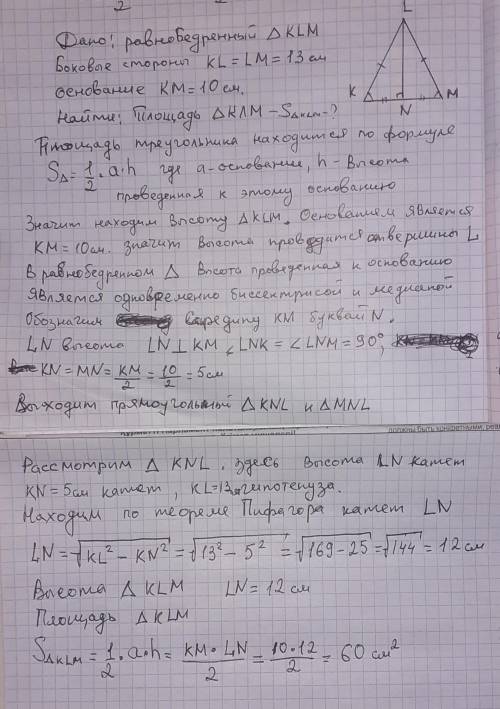 L
Дано: равнобедренный △KLM
Боковые стороны KL = LM = 13 см
основание KM = 10 см.
K N M
Найти: Площадь △KLM - S△KLM - ?
Площадь треугольника находится по формуле
S△ = 1/2 · a · h где a - основание, h - высота
проведенная к этому основанию
Значит находим высоту △KLM. Основанием является
KM = 10 см. значит высота проводится от вершины L
В равнобедренном △ высота проведенная к основанию
является одновременно биссектрисой и медианой
Обозначим середину KM буквай N.
LN высота LN ⊥ KM ∠LNK = ∠LNM = 90°,
KN = MN = KM/2 = 10/2 = 5 см
Выходит прямоугольный △KNL и △MNL
должны быть конкретными, реа
Рассмотрим △ KNL. здесь высота LN катет
KN = 5 см катет, KL = 13 гипотенуза.
Находим по теореме Пифагора катет LN
LN = √KL² - KN² = √13² - 5² = √169 - 25 = √144 = 12 см
Высота △KLM LN = 12 см
Площадь △KLM
S△KLM = 1/2 · a · h = KM · LN/2 = 10 · 12/2 = 60 см²